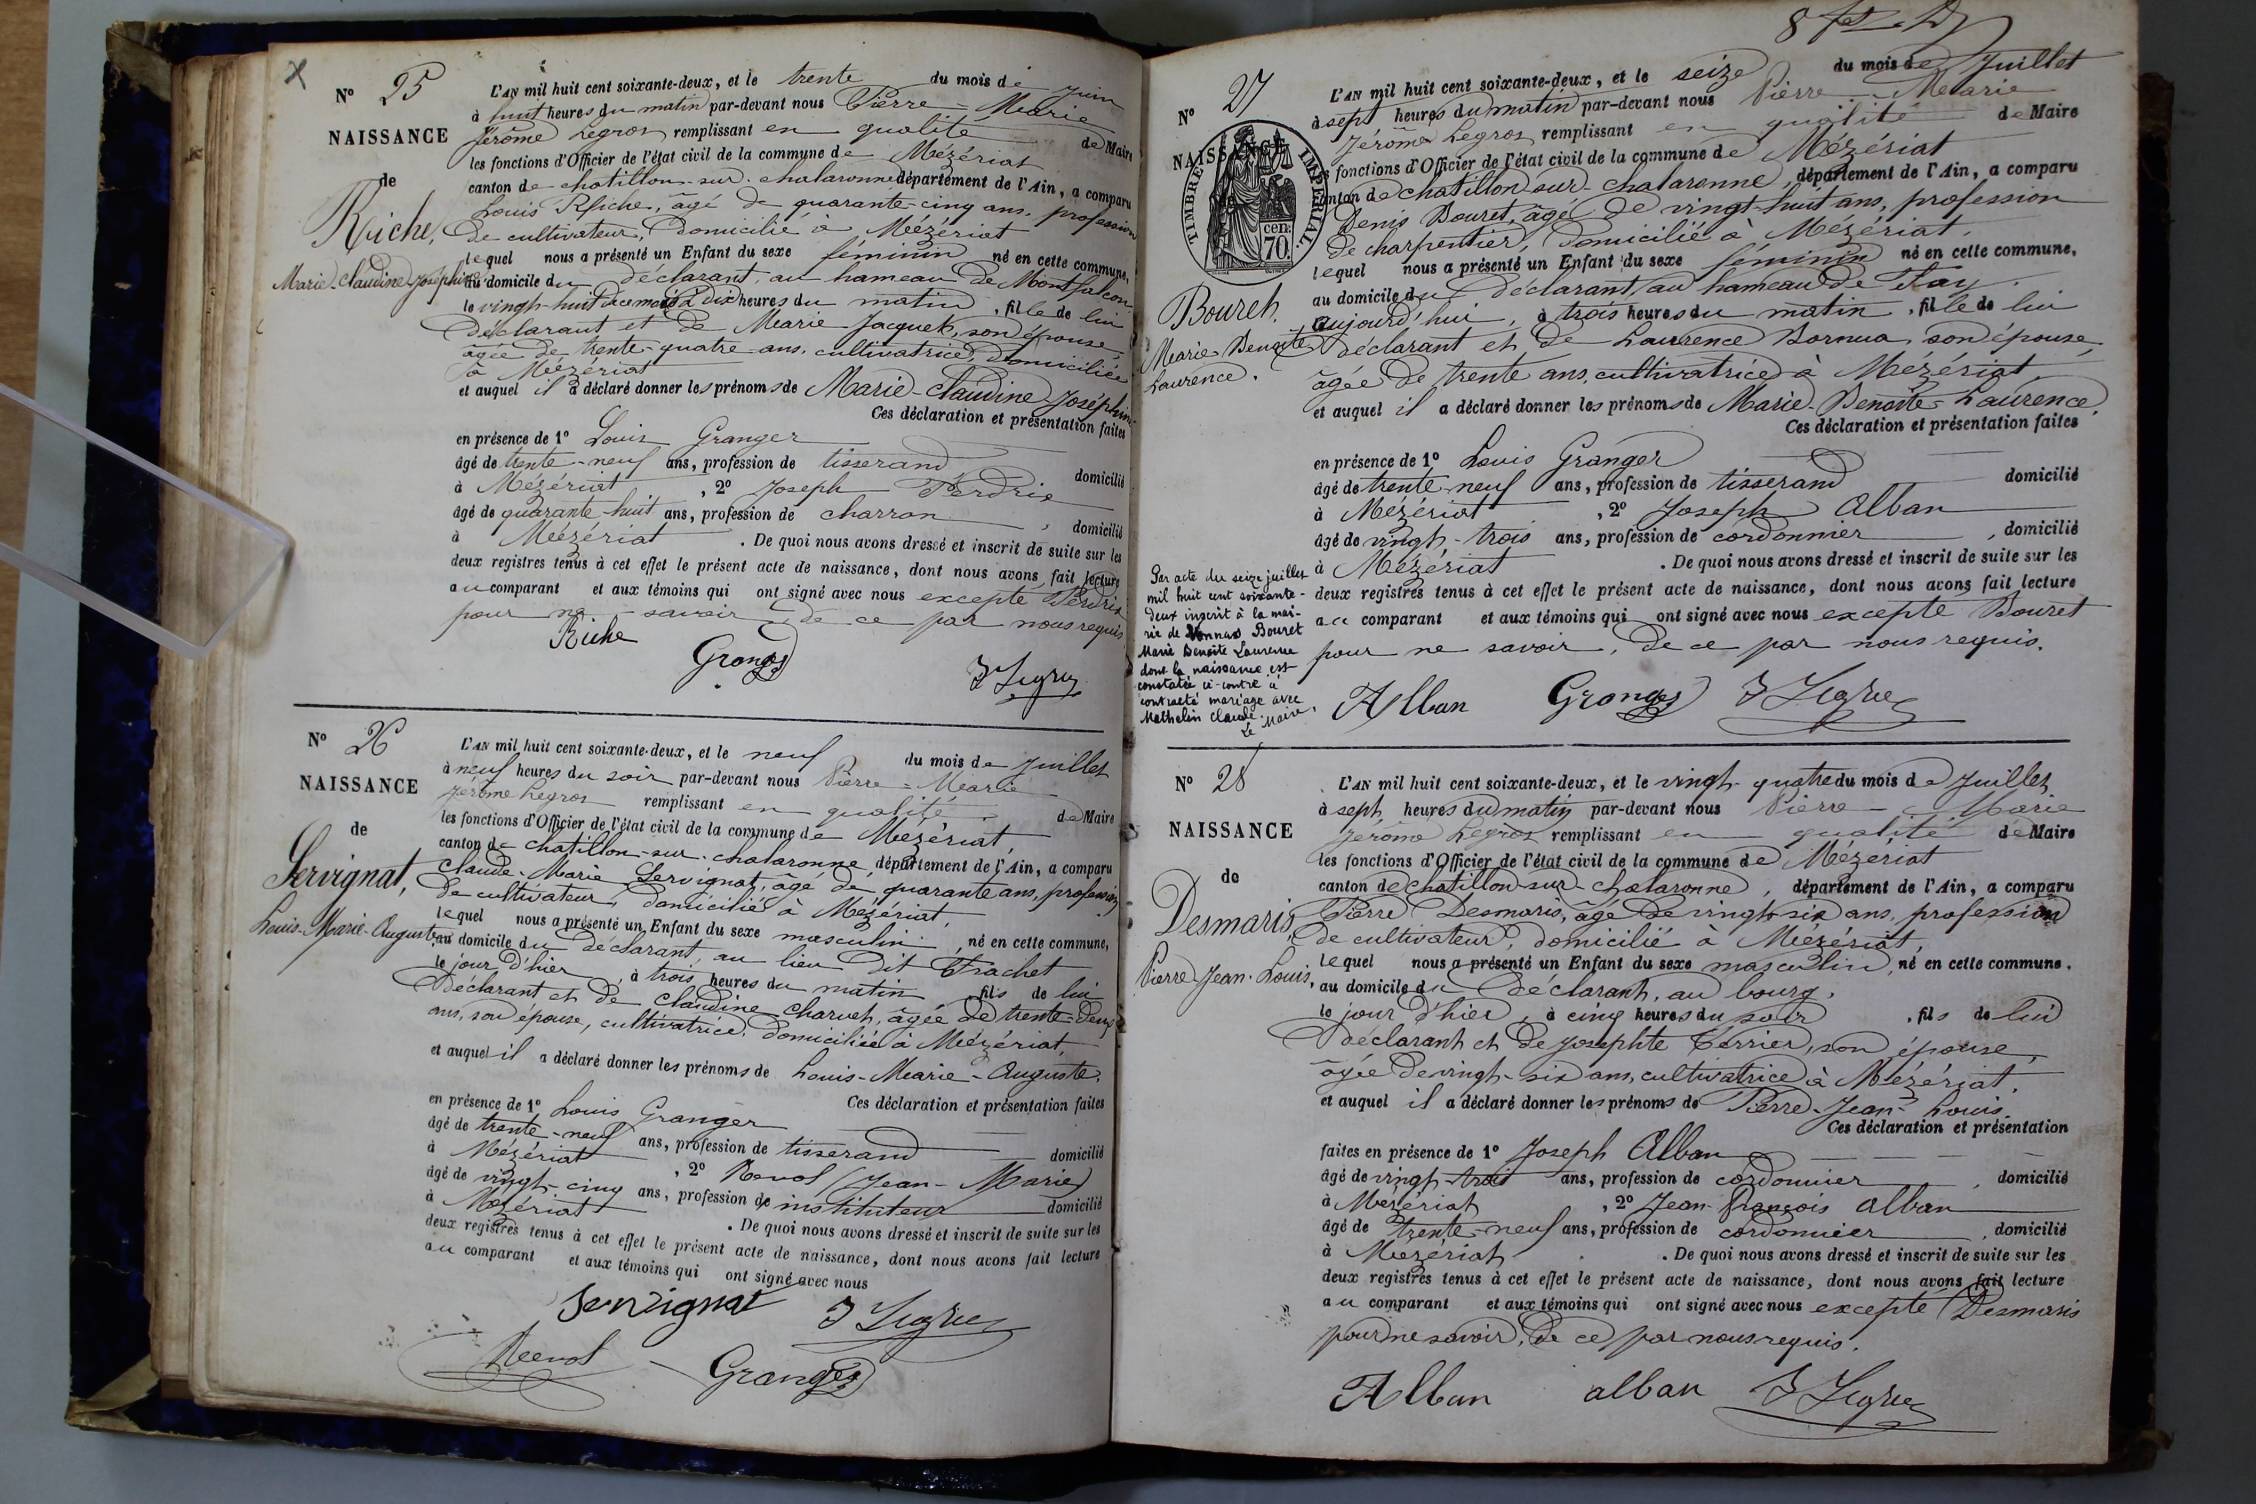 N° 25
NAISSANCE
de
Riche,
Marie-Claudine-Joséphine
L'AN mil huit cent soixante-deux, et le trente du mois de juin
à huit heures du matin par-devant nous Pierre-Marie
Jérôme Legros remplissant en qualité de Maire
les fonctions d'Officier de l'état civil de la commune de Mézériat
canton de chatillon-sur-chalaronne département de l'Ain, a comparu
Louis Riche, âgé de quarante-cinq ans, profession
de cultivateur, domicilié à Mézériat
lequel nous a présenté un Enfant du sexe féminin né en cette commune,
au domicile du déclarant, au hameau de Montfalcon
le vingt-huit du mois à dix heures du matin, fille de lui
déclarant et de Marie Jacquet, son épouse,
âgée de trente-quatre ans, cultivatrice, domiciliée
à Mézériat
et auquel il a déclaré donner les prénoms de Marie-Claudine-Joséphine
Ces déclaration et présentation faites
en présence de 1° Louis Granger
âgé de trente-neuf ans, profession de tisserand domicilié
à Mézériat, 2° Joseph Perdrix
âgé de quarante-huit ans, profession de charron, domicilié
à Mézériat. De quoi nous avons dressé et inscrit de suite sur les
deux registres tenus à cet effet le présent acte de naissance, dont nous avons fait lecture
au comparant et aux témoins qui ont signé avec nous excepté Perdrix
pour ne savoir, de ce par nous requis
Riche
Granger
J Legros
N° 26
NAISSANCE
de
Servignat,
Louis-Marie-Auguste
L'AN mil huit cent soixante-deux, et le neuf du mois de juillet
à neuf heures du soir par-devant nous Pierre-Marie
Jérôme Legros remplissant en qualité de Maire
les fonctions d'Officier de l'état civil de la commune de Mézériat,
canton de chatillon-sur-chalaronne, département de l'Ain, a comparu
Claude-Marie Servignat, âgé de quarante ans, profession
de cultivateur, domicilié à Mézériat,
lequel nous a présenté un Enfant du sexe masculin, né en cette commune,
au domicile du déclarant, au lieu dit Trachet
le jour d'hier, à trois heures du matin, fils de lui
déclarant et de Claudine Charvet, âgée de trente-deux
ans, son épouse, cultivatrice, domiciliée à Mézériat,
et auquel il a déclaré donner les prénoms de Louis-Marie-Auguste.
Ces déclaration et présentation faites
en présence de 1° Louis Granger
âgé de trente-neuf ans, profession de tisserand domicilié
à Mézériat, 2° Revol (Jean-Marie)
âgé de vingt-cinq ans, profession de instituteur domicilié
à Mézériat. De quoi nous avons dressé et inscrit de suite sur les
deux registres tenus à cet effet le présent acte de naissance, dont nous avons fait lecture
au comparant et aux témoins qui ont signé avec nous
Servignat J Legros
Revol Granger
N° 27
NAISSANCE
TIMBRE IMPERIAL.
cen.
70.
Bouret.
Marie Benoîte
Laurence.
L'AN mil huit cent soixante-deux, et le seize du mois de Juillet
à sept heures du matin par-devant nous Pierre-Marie
Jérôme Legros remplissant en qualité de Maire
les fonctions d'Officier de l'état civil de la commune de Mézériat
canton de chatillon sur-chalaronne, département de l'Ain, a comparu
Denis Bouret, âgé de vingt-huit ans, profession
de charpentier, domicilié à Mézériat,
lequel nous a présenté un Enfant du sexe féminin né en cette commune,
au domicile du déclarant, au hameau de Fay
aujourd'hui, à trois heures du matin, fille de lui
déclarant et de Laurence Bornua, son épouse,
âgée de trente ans, cultivatrice à Mézériat
et auquel il a déclaré donner les prénoms de Marie-Benoîte-Laurence.
Ces déclaration et présentation faites
en présence de 1° Louis Granger
âgé de trente neuf ans, profession de tisserand domicilié
à Mézériat, 2° Joseph Alban
âgé de vingt-trois ans, profession de cordonnier, domicilié
à Mézériat. De quoi nous avons dressé et inscrit de suite sur les
deux registres tenus à cet effet le présent acte de naissance, dont nous avons fait lecture
au comparant et aux témoins qui ont signé avec nous excepté Bouret
pour ne savoir, de ce par nous requis.
Alban Granger J Legros
Par acte du seize juillet
mil huit cent soixante-
deux inscrit à la mai-
rie de Vonnas Bouret
Marie Benoîte Laurence
dont la naissance est
constatée ci-contre a
contracté mariage avec
Mathelin Claude.
Le Maire,
N° 28
NAISSANCE
de
Desmaris,
Pierre-Jean-Louis,
L'AN mil huit cent soixante-deux, et le vingt-quatre du mois de Juillet
à sept heures du matin par-devant nous Pierre-Marie
Jérôme Legros remplissant en qualité de Maire
les fonctions d'Officier de l'état civil de la commune de Mézériat
canton de chatillon-sur-chalaronne, département de l'Ain, a comparu
Pierre Desmaris, âgé de vingt-six ans, profession
de cultivateur, domicilié à Mézériat,
lequel nous a présenté un Enfant du sexe masculin, né en cette commune,
au domicile du déclarant, au bourg,
le jour d'hier, à cinq heures du soir, fils de lui
déclarant et de Josephte Terrier, son épouse,
âgée de vingt-six ans, cultivatrice à Mézériat,
et auquel il a déclaré donner les prénoms de Pierre-Jean-Louis.
Ces déclaration et présentation
faites en présence de 1° Joseph Alban
âgé de vingt-trois ans, profession de cordonnier, domicilié
à Mézériat, 2° Jean-François Alban
âgé de trente-neuf ans, profession de cordonnier, domicilié
à Mézériat. De quoi nous avons dressé et inscrit de suite sur les
deux registres tenus à cet effet le présent acte de naissance, dont nous avons fait lecture
au comparant et aux témoins qui ont signé avec nous excepté Desmaris
pour ne savoir, de ce par nous requis.
Alban alban J Legros